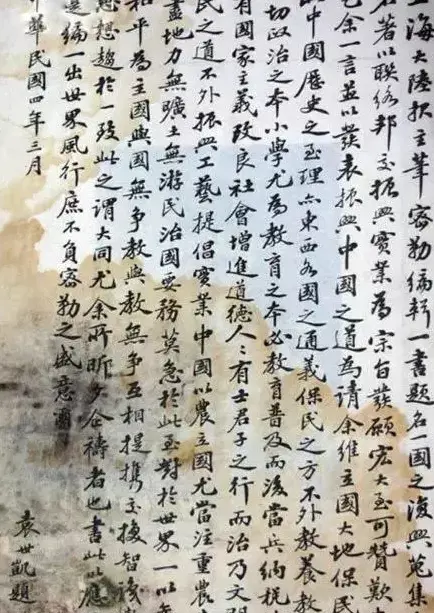 上海大陸報主筆密勒編輯一書題名一國之復興蒐集
名著以聯絡邦交振興實業為宗旨發願宏大至可贊歎
乞余一言並以發表振興中國之道為請余維立國大地保民
中國歷史之至理亦東西各國之通義保民之方不外教養教
切政治之本小學尤為教育之本必教育普及而後當兵納稅
有國家主義改良社會增進道德人人有士君子之行而治乃文
民之道不外振興工藝提倡實業中國以農立國尤當注重農
盡地力無曠土無游民治國要務莫急於此至對於世界一以
和平為主國與國無爭教與教無爭互相提攜交換智識
思想趨於一致此之謂大同尤余所昕夕企禱者也書此以應
編一出世界風行庶不負密勒之盛意爾
華民國四年三月
袁世凱題